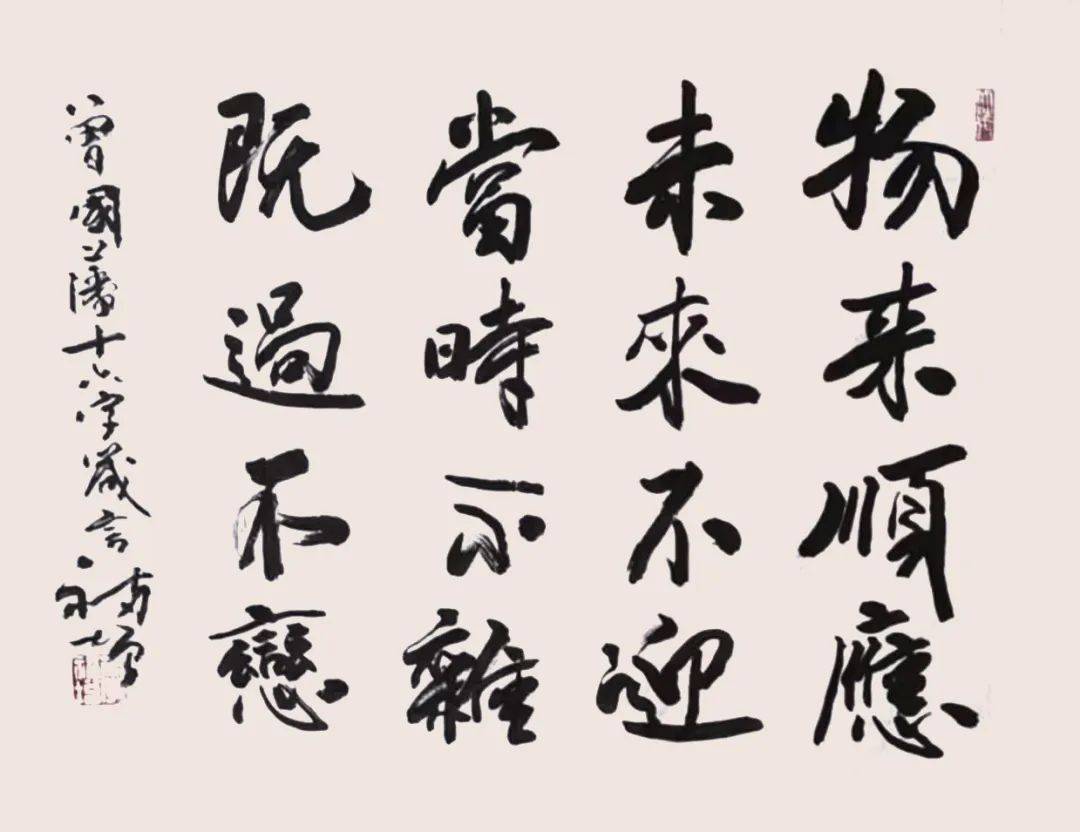 物来順應
未來不迎
當時不雜
既過不戀
曾國藩十六字箴言